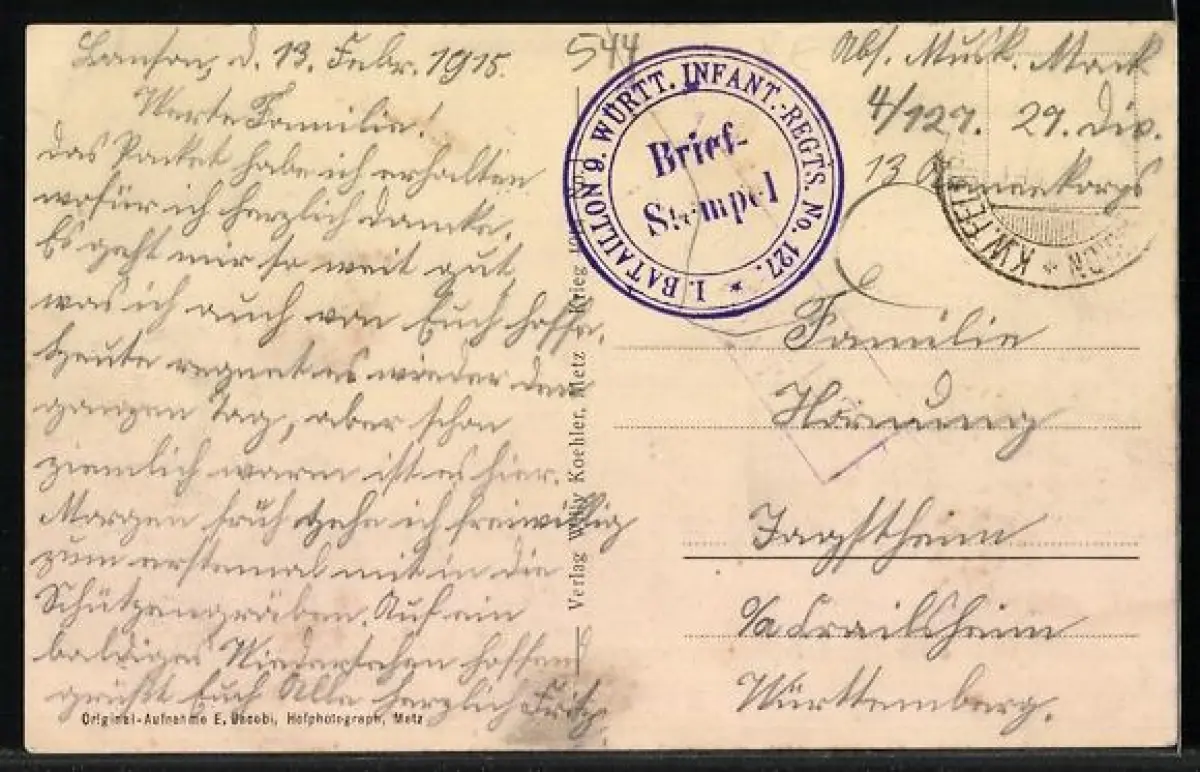 Lanson, d. 13. Febr. 1915.
Werte Familie!
das Packet habe ich erhalten
wofür ich herzlich danke.
Es geht mir so weit gut
was ich auch von Euch hoffe.
Heute regnet es wieder den
ganzen Tag, aber schon
ziemlich warm ist es hier.
Morgen früh gehe ich freiwillig
zum erstemal mit in die
Schützengräben. Auf ein
baldiges Wiedersehen hoffend
grüßt Euch Alle herzlich Fritz.
Original-Aufnahme E. Jacobi, Hofphotograph, Metz
Verlag Willy Koehler, Metz
Krieg
544
I. BATAILLON 9. WÜRTT. INFANT.-REGTS. No. 127. *
Brief-
Stempel
Abs. Musk. Mack
4/127. 27. Div.
13 Armeekorps
K.W. FEL
Familie
Hornung
Jagstheim
o/a Crailsheim
Württemberg.